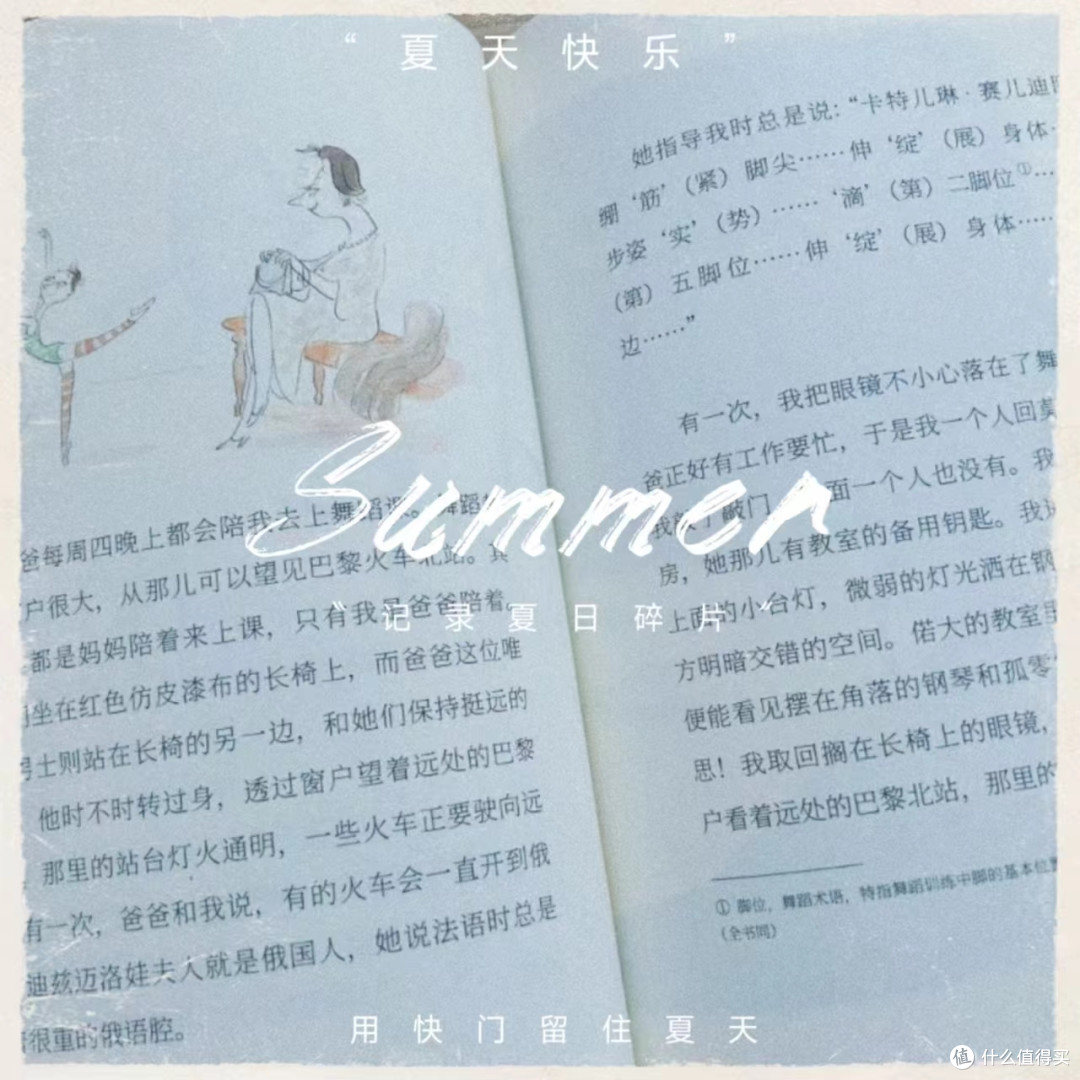 “夏天快乐”
爸每周四晚上都会陪我去上舞蹈课。舞蹈
户很大，从那儿可以望见巴黎火车北站。其
都是妈妈陪着来上课，只有我是爸爸陪着。
坐在红色仿皮漆布的长椅上，而爸爸这位唯
男士则站在长椅的另一边，和她们保持挺远的
他时不时转过身，透过窗户望着远处的巴黎
那里的站台灯火通明，一些火车正要驶向远
有一次，爸爸和我说，有的火车会一直开到俄
迪兹迈洛娃夫人就是俄国人，她说法语时总是
很重的俄语腔。
她指导我时总是说：“卡特儿琳·赛儿迪
绷‘筋’（紧）脚尖……伸‘绽’（展）身体…
步姿‘实’（势）……‘滴’（第）二脚位①…
（第）五脚位……伸‘绽’（展）身体……
边……”
有一次，我把眼镜不小心落在了舞
爸正好有工作要忙，于是我一个人回
我敲了敲门，面一个人也没有。我
房，她那儿有教室的备用钥匙。我
上面的小台灯，微弱的灯光洒在钢
方明暗交错的空间。偌大的教室里
便能看见摆在角落的钢琴和孤零
思！我取回搁在长椅上的眼镜，
户看着远处的巴黎北站，那里的
① 脚位，舞蹈术语，特指舞蹈训练中脚的基本位置
（全书同）
Summer
“记录夏日碎片”
用快门留住夏天
值 什么值得买